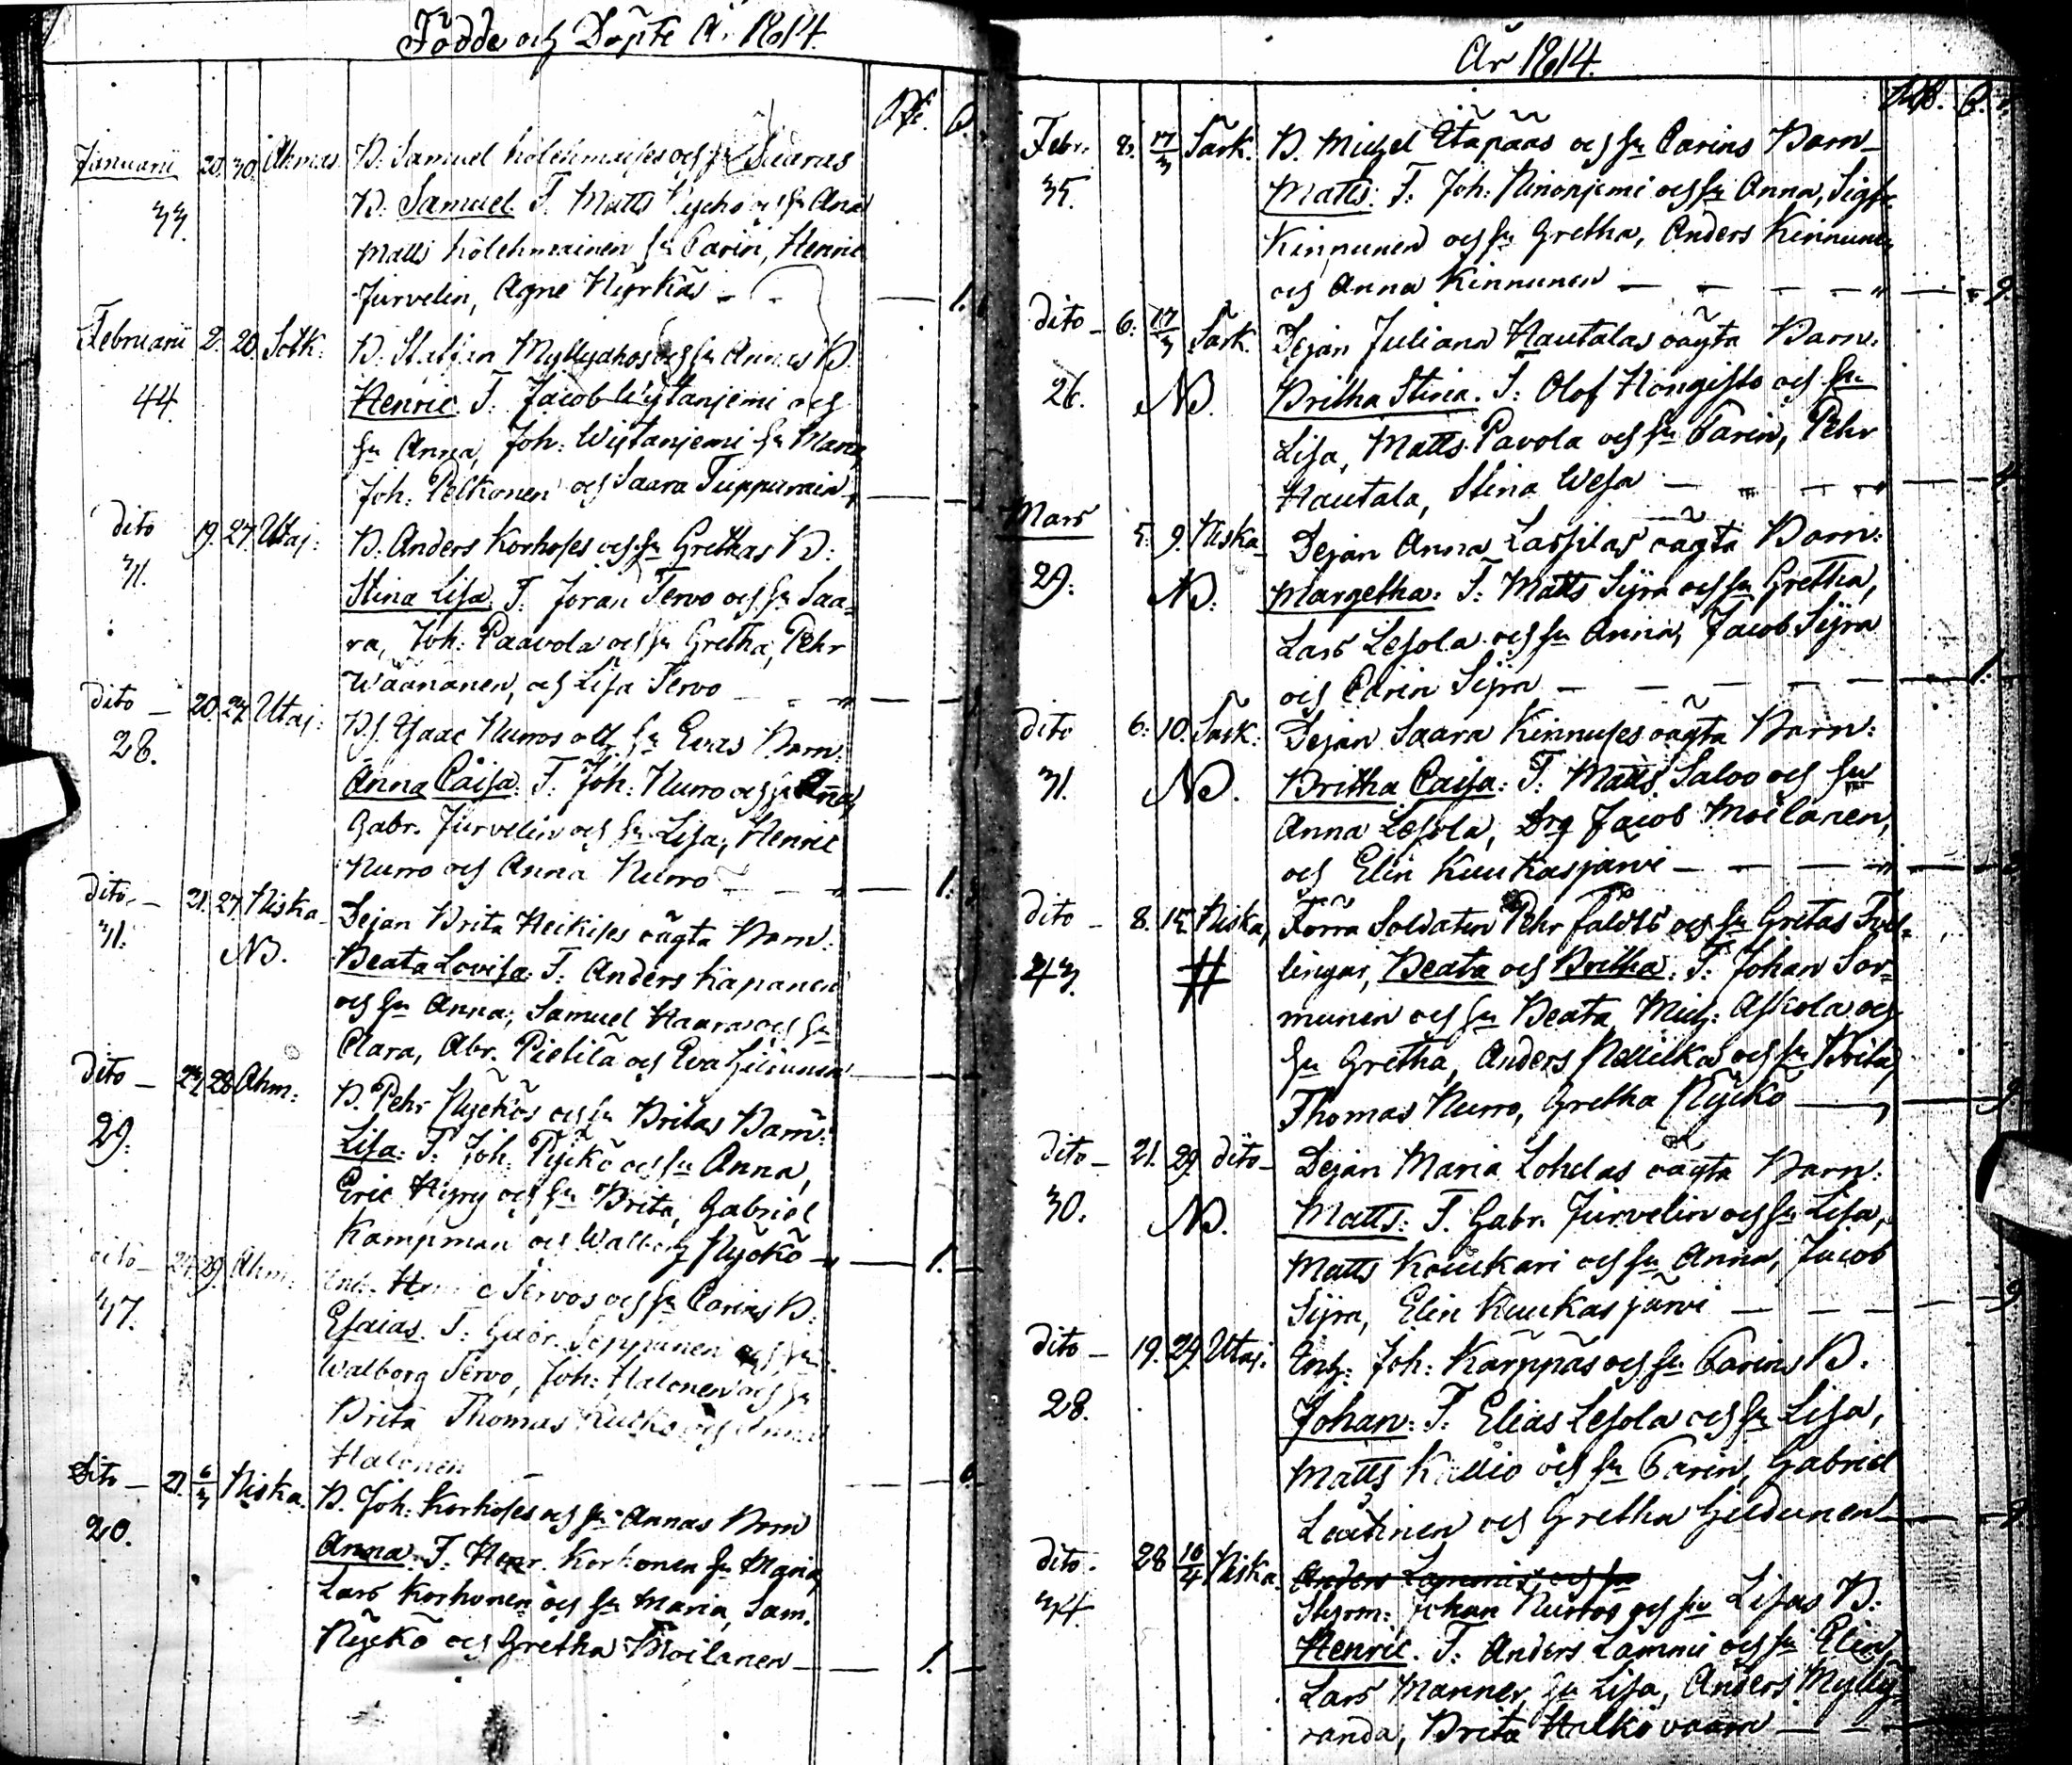 Födde och Döpte År 1814.
Januarii 20. 30. Ahmas. B. Samuel Kolehmaises och hu Saaras
33. B. Samuel. F. Matts Nycko och hu Anna
Matts Kolehmainen hu Carin, Henric
Jurvelin, Agne Nyrkäs — 1.
Februarii 2. 20. Sotk: B. Staffan Myllyahos och hu Annas B.
44. Henric F. Jacob Wistanjemi och
hu Anna, Joh: Wistanjemi hu Maria,
Joh: Pelkonen och Saara Tuppurain
dito 19. 27. Utaj: B. Anders Korhoses och hu Grethas B:
31. Stina Lisa. F. Joran Tervo och hu Saa-
ra, Joh: Paavola och hu Gretha, Pehr
Wäänänen, och Lisa Tervo
dito — 20. 27. Utaj: Isaac Nurros och hu Evas Barn:
28. Anna Caisa: F: Joh: Nurro och hu Anna,
Gabr. Jurvelin och hu Lisa, Henric
Nurro och Anna Nurro — 1.
dito. — 21. 27. Niska. Pejan Brita Heikises oägta Barn:
31. NB. Beata Lovisa: F: Anders Kapanen
och hu Anna, Samuel Haara och hu
Clara, Abr. Pietilä och Eva
dito — 24. 28. Ahm: B. Pehr Nyckös och hu Britas Barn:
29. Lisa: F: Joh: Pyckö och hu Anna,
Eric Hyry och hu Brita, Gabriel
Kampman och Walborg Nyckö — 1.
dito — 27. 29. Ahm: Tervos och hu Carins B:
37. Esaias. F: Gabr. Seppänen och hu
Walborg Tervo, Joh: Halonen och hu
Brita Thomas och Anna
Halonen —
Dito — 21. 6/3 Niska. B. Joh: Korhoses och hu Annas Barn
20. Anna. F: Henr. Korhonen hu Maria,
Lars Korhonen och hu Maria, Sam.
Nyckö och Gretha Moilanen — 1.
År 1814.
Febr. 2. 17/3 Särk. B. Michel Etäpääs och hu Carins Barn
35. Matts: F: Joh: Ninonjemi och hu Anna, Sigfr.
Kinnunen och hu Gretha, Anders Kinnunen
och Anna Kinnunen — 9.
dito — 6. 17/3 Särk. Pejan Juliana Hautalas oägta Barn:
26. NB. Britha Stina. F: Olof Hongisto och hu
Lisa, Matts Pavola och hu Carin, Pehr
Hautala, Stina Wesa —
Mars 5. 9. Niska Pejan Anna Lassilas oägta Barn:
29: NB: Margetha: F: Matts Sijra och hu Gretha,
Lars Lesola och hu Anna, Jacob Sijra
och Carin Sijra — 1.
dito 6. 10. Särk: Pejan Saara Kinnuses oägta Barn:
31. NB. Britha Caisa: F: Matts Salvo och hu
Anna Lesola, Drg Jacob Moilanen,
och Elin Kuukasjärvi —
dito — 8. 15. Niska, Förra Soldaten Pehr Faldts och hu Gretas Tvil-
43. # lingar, Beata och Britha. F: Johan Sor-
munen och hu Beata, Mich: Askola och
hu Gretha, Anders Nallikka och hu Brita,
Thomas Nurro, Gretha Nyckö — 9
dito — 21. 29. dito — Pejan Maria Lohelas oägta Barn:
30. NB. Matts: F. Gabr. Jurvelin och hu Lisa,
Matts Koukari och hu Anna, Jacob
Sijra, Elin Kuukasjärvi — 9
dito — 19. 29. Utaj: Inh: Joh: Karppäs och hu Carins B:
28. Johan: F: Elias Lesola och hu Lisa,
Matts Kallio och hu Carin, Gabriel
Laatinen och Gretha
dito. 28. 10/4 Niska. Anders Lammi och hu
34. Styrm: Johan Nurros och hu Lisas B:
Henric. F: Anders Lammi och hu Elin
Lars Manner, hu Lisa, Anders Mylly-
randa, Brita Halkovaara —